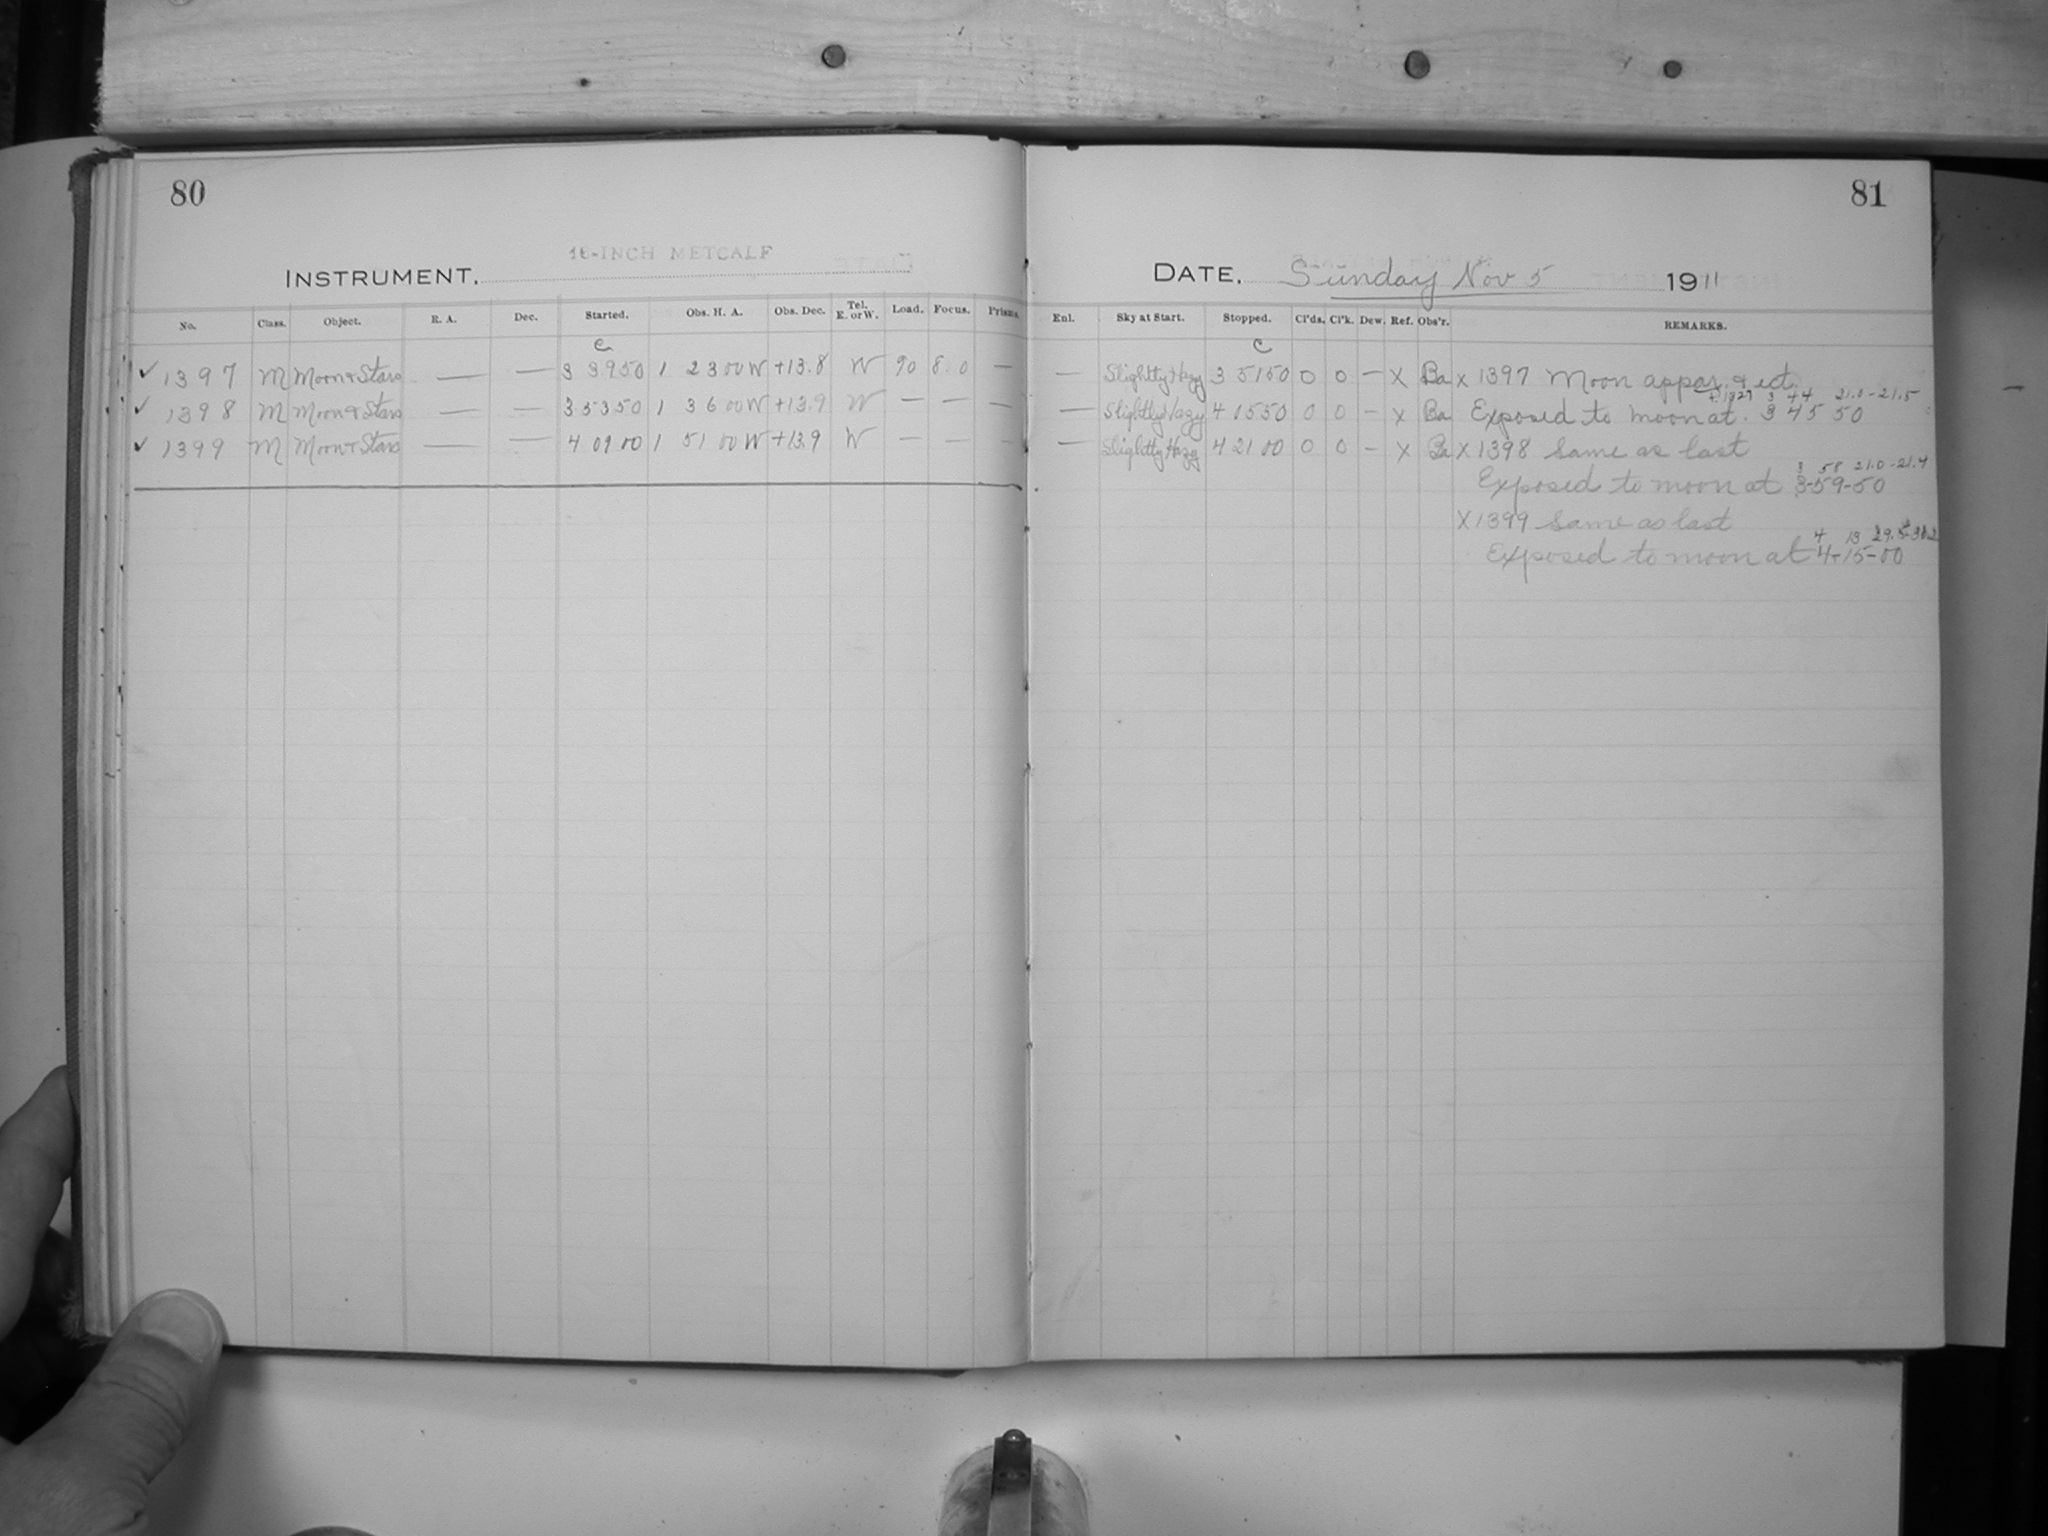 80
16-INCH METCALF
INSTRUMENT.
No. Class. Object. R. A. Dec. Started. Obs. H. A. Obs. Dec. Tel. E. or W. Load. Focus. Prisms.
C
✓ 1397 M Moon & Stars — — 3 39 50 1 23 00 W +13.8 W 90 8.0 —
✓ 1398 M Moon & Stars — — 3 53 50 1 36 00 W +13.9 W — — —
✓ 1399 M Moon & Stars — — 4 09 00 1 51 00 W +13.9 W — — —
81
DATE. Sunday Nov 5 1911
Enl. Sky at Start. Stopped. Cl'ds. Cl'k. Dew. Ref. Obs'r. REMARKS.
C
— Slightly Hazy 3 51 50 0 0 — X Ba X 1397 Moon appar. & ect.
3 44 21.0-21.5
— Slightly Hazy 4 05 50 0 0 — X Ba Exposed to moon at 3 45 50
— Slightly Hazy 4 21 00 0 0 — X Ba X 1398 Same as last
3 58 21.0-21.4
Exposed to moon at 3-59-50
X 1399 Same as last
4 13
Exposed to moon at 4-15-00